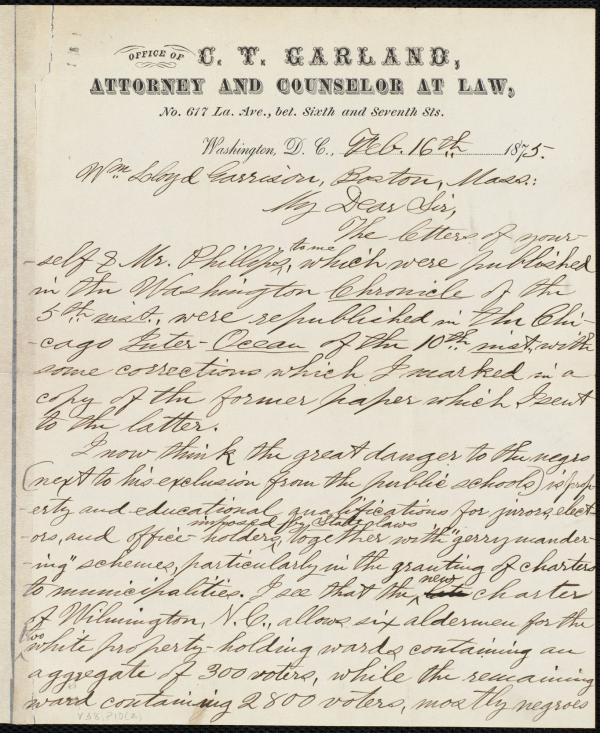 OFFICE OF C. T. GARLAND,
ATTORNEY AND COUNSELOR AT LAW,
No. 617 La. Ave., bet. Sixth and Seventh Sts.
Washington, D. C., Feb. 16th 1875.
Wm Lloyd Garrison, Boston, Mass.:
My Dear Sir,
The letters of your-
-self & Mr. Phillips, to me, which were published
in the Washington Chronicle of the
5th inst., were republished in the Chi-
-cago Inter-Ocean of the 10th inst, with
some corrections which I marked in a
copy of the former paper which I sent
to the latter.
I now think the great danger to the negro
(next to his exclusion from the public schools) is prop-
-erty and educational qualifications for jurors, elect-
imposed by State laws
-ors, and office-holders, together with "gerrymander-
-ing" schemes, particularly in the granting of charters
to municipalities. I see that the new charter
of Wilmington, N.C., allows six aldermen for the
two
white property-holding wards containing an
aggregate of 300 voters, while the remaining
ward containing 2800 voters, mostly negroes